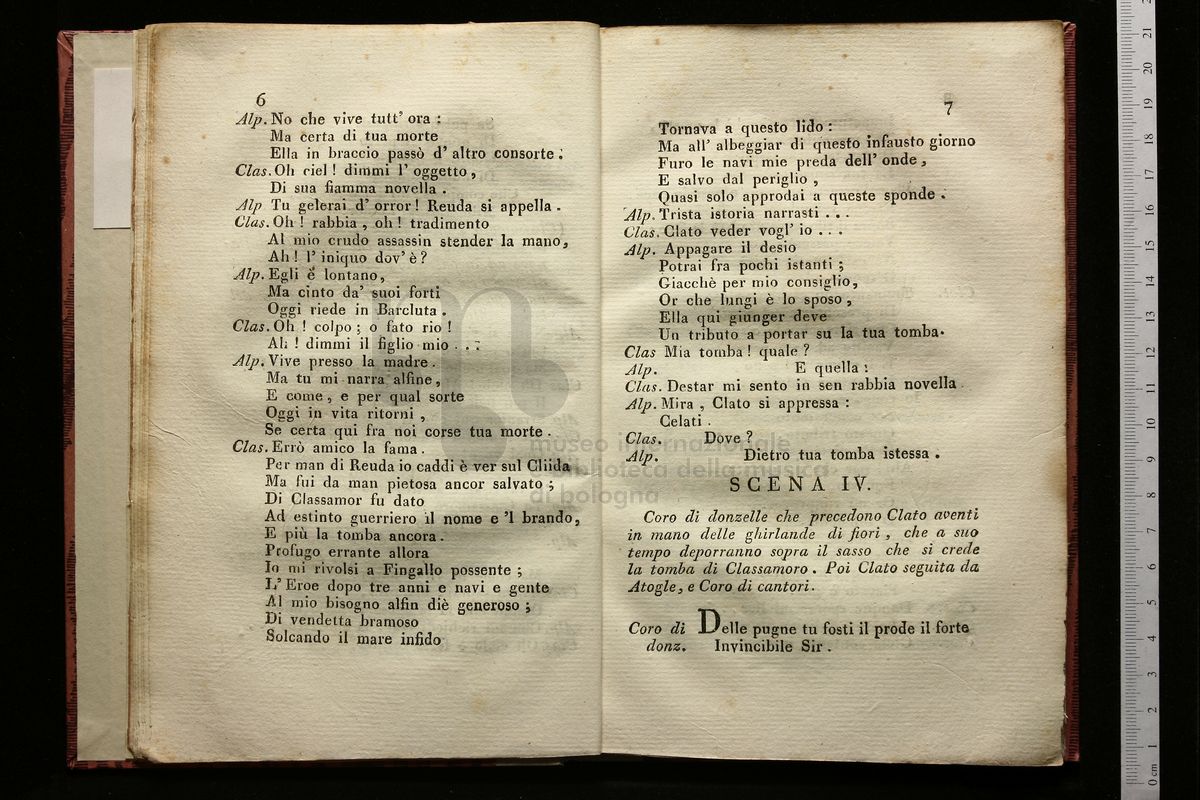 6
Alp. No che vive tutt' ora :
Ma certa di tua morte
Ella in braccio passò d' altro consorte .
Clas. Oh ciel ! dimmi l' oggetto ,
Di sua fiamma novella .
Alp Tu gelerai d' orror ! Reuda si appella .
Clas. Oh ! rabbia , oh ! tradimento
Al mio crudo assassin stender la mano,
Ah ! l' iniquo dov' è ?
Alp. Egli è lontano,
Ma cinto da' suoi forti
Oggi riede in Barcluta .
Clas. Oh ! colpo ; o fato rio !
Ah ! dimmi il figlio mio . . .
Alp. Vive presso la madre .
Ma tu mi narra alfine ,
E come , e per qual sorte
Oggi in vita ritorni ,
Se certa qui fra noi corse tua morte .
Clas. Errò amico la fama .
Per man di Reuda io caddi è ver sul Cliida
Ma fui da man pietosa ancor salvato ;
Di Classamor fu dato
Ad estinto guerriero il nome e 'l brando,
E più la tomba ancora .
Profugo errante allora
Io mi rivolsi a Fingallo possente ;
L' Eroe dopo tre anni e navi e gente
Al mio bisogno alfin diè generoso ;
Di vendetta bramoso
Solcando il mare infido
7
Tornava a questo lido :
Ma all' albeggiar di questo infausto giorno
Furo le navi mie preda dell' onde ,
E salvo dal periglio ,
Quasi solo approdai a queste sponde .
Alp. Trista istoria narrasti . . .
Clas. Clato veder vogl' io . . .
Alp. Appagare il desio
Potrai fra pochi istanti ;
Giacchè per mio consiglio,
Or che lungi è lo sposo ,
Ella qui giunger deve
Un tributo a portar su la tua tomba.
Clas Mia tomba ! quale ?
Alp. E quella :
Clas. Destar mi sento in sen rabbia novella .
Alp. Mira , Clato si appressa :
Celati .
Clas. Dove ?
Alp. Dietro tua tomba istessa .
SCENA IV.
Coro di donzelle che precedono Clato aventi
in mano delle ghirlande di fiori , che a suo
tempo deporranno sopra il sasso che si crede
la tomba di Classamoro . Poi Clato seguita da
Atogle, e Coro di cantori.
Coro di Delle pugne tu fosti il prode il forte
donz. Invincibile Sir .
museo internazionale
e biblioteca della musica
di bologna